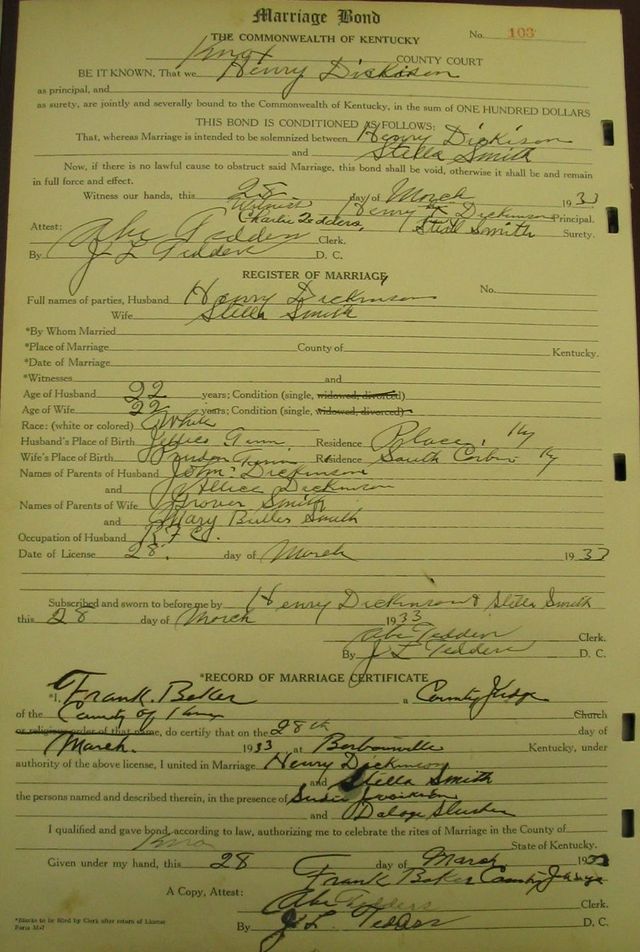 Marriage Bond
THE COMMONWEALTH OF KENTUCKY No. 103
Knox COUNTY COURT
BE IT KNOWN, That we Henry Dickison
as principal, and
as surety, are jointly and severally bound to the Commonwealth of Kentucky, in the sum of ONE HUNDRED DOLLARS
THIS BOND IS CONDITIONED AS FOLLOWS:
That, whereas Marriage is intended to be solemnized between Henry Dickison
and Stella Smith
Now, if there is no lawful cause to obstruct said Marriage, this bond shall be void, otherwise it shall be and remain
in full force and effect.
Witness our hands, this 28 day of March 1933
Witness Henry Dickinson Principal.
Attest: Charlie Tedders, Smith Surety.
Abe Tedders Clerk.
By J L Tedders D. C.
REGISTER OF MARRIAGE
Full names of parties, Husband Henry Dickinson No.
Wife Stella Smith
*By Whom Married
*Place of Marriage County of Kentucky.
*Date of Marriage
*Witnesses and
Age of Husband 22 years; Condition (single, widowed, divorced)
Age of Wife 22 years; Condition (single, widowed, divorced)
Race: (white or colored) White
Husband's Place of Birth Tenn Residence Place, Ky
Wife's Place of Birth Residence South Corbin Ky
Names of Parents of Husband John Dickinson
and Allice Dickinson
Names of Parents of Wife Grover Smith
and Mary Butler Smith
Occupation of Husband
Date of License 28. day of March 1933
Subscribed and sworn to before me by Henry Dickinson & Stella Smith
this 28 day of March 1933
Abe Tedders Clerk.
By J L Tedders D. C.
*RECORD OF MARRIAGE CERTIFICATE
*I, Frank Baker a County Judge
of the County of Knox Church
or religious order of that name, do certify that on the 28th day of
March. 1933 at Barbourville Kentucky, under
authority of the above license, I united in Marriage Henry Dickinson
and Stella Smith
the persons named and described therein, in the presence of Susie
and
I qualified and gave bond, according to law, authorizing me to celebrate the rites of Marriage in the County of
Knox State of Kentucky.
Given under my hand, this 28 day of March 1933
Frank Baker County Judge
A Copy, Attest: Abe Tedders Clerk.
By J. L. Tedders D. C.
*Blanks to be filed by Clerk after return of License
Form M-7